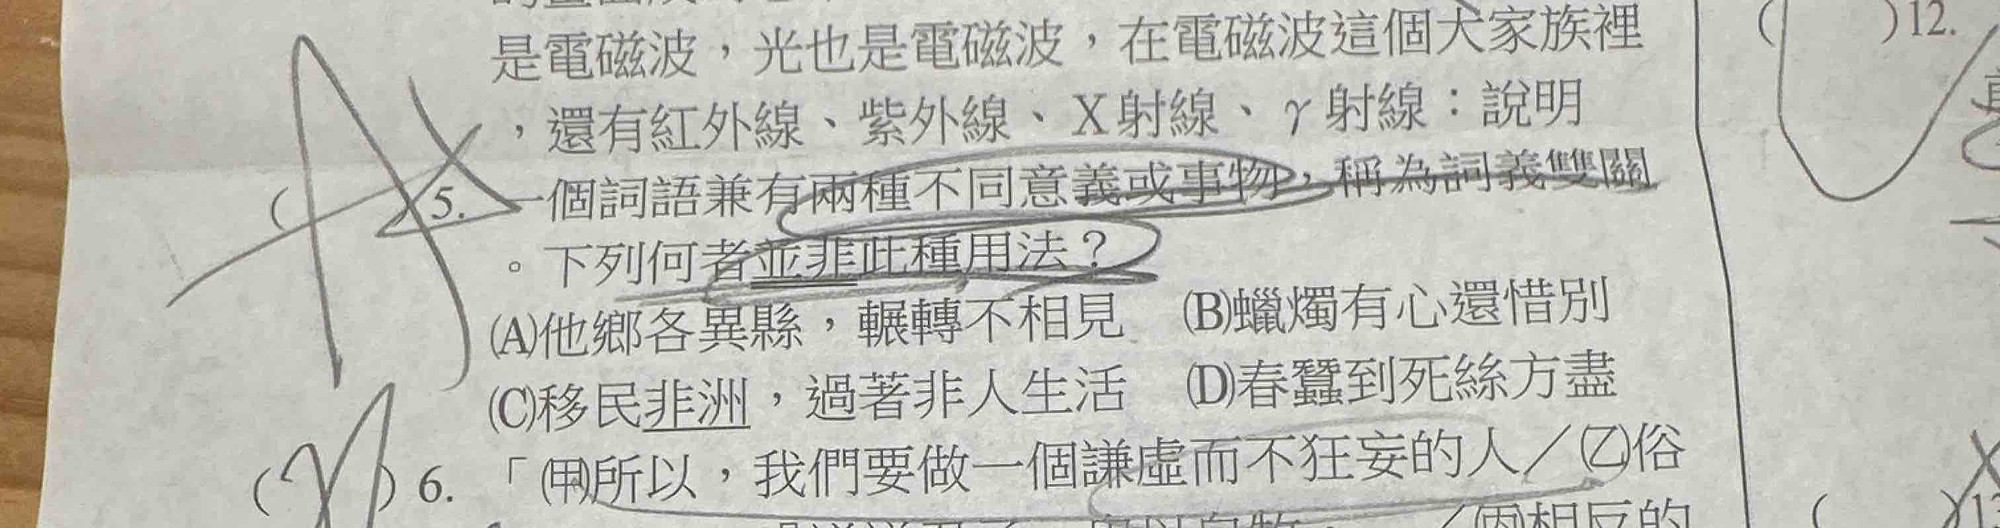 是電磁波，光也是電磁波，在電磁波這個大家族裡
，還有紅外線、紫外線、X射線、γ射線：說明
( A ) 5. 一個詞語兼有兩種不同意義或事物，稱為詞義雙關
。下列何者並非此種用法？
(A)他鄉各異縣，輾轉不相見 (B)蠟燭有心還惜別
(C)移民非洲，過著非人生活 (D)春蠶到死絲方盡
( ) 6. 「(甲)所以，我們要做一個謙虛而不狂妄的人／(乙)俗
／(丙)相反的
( ) 12.
( ) 13